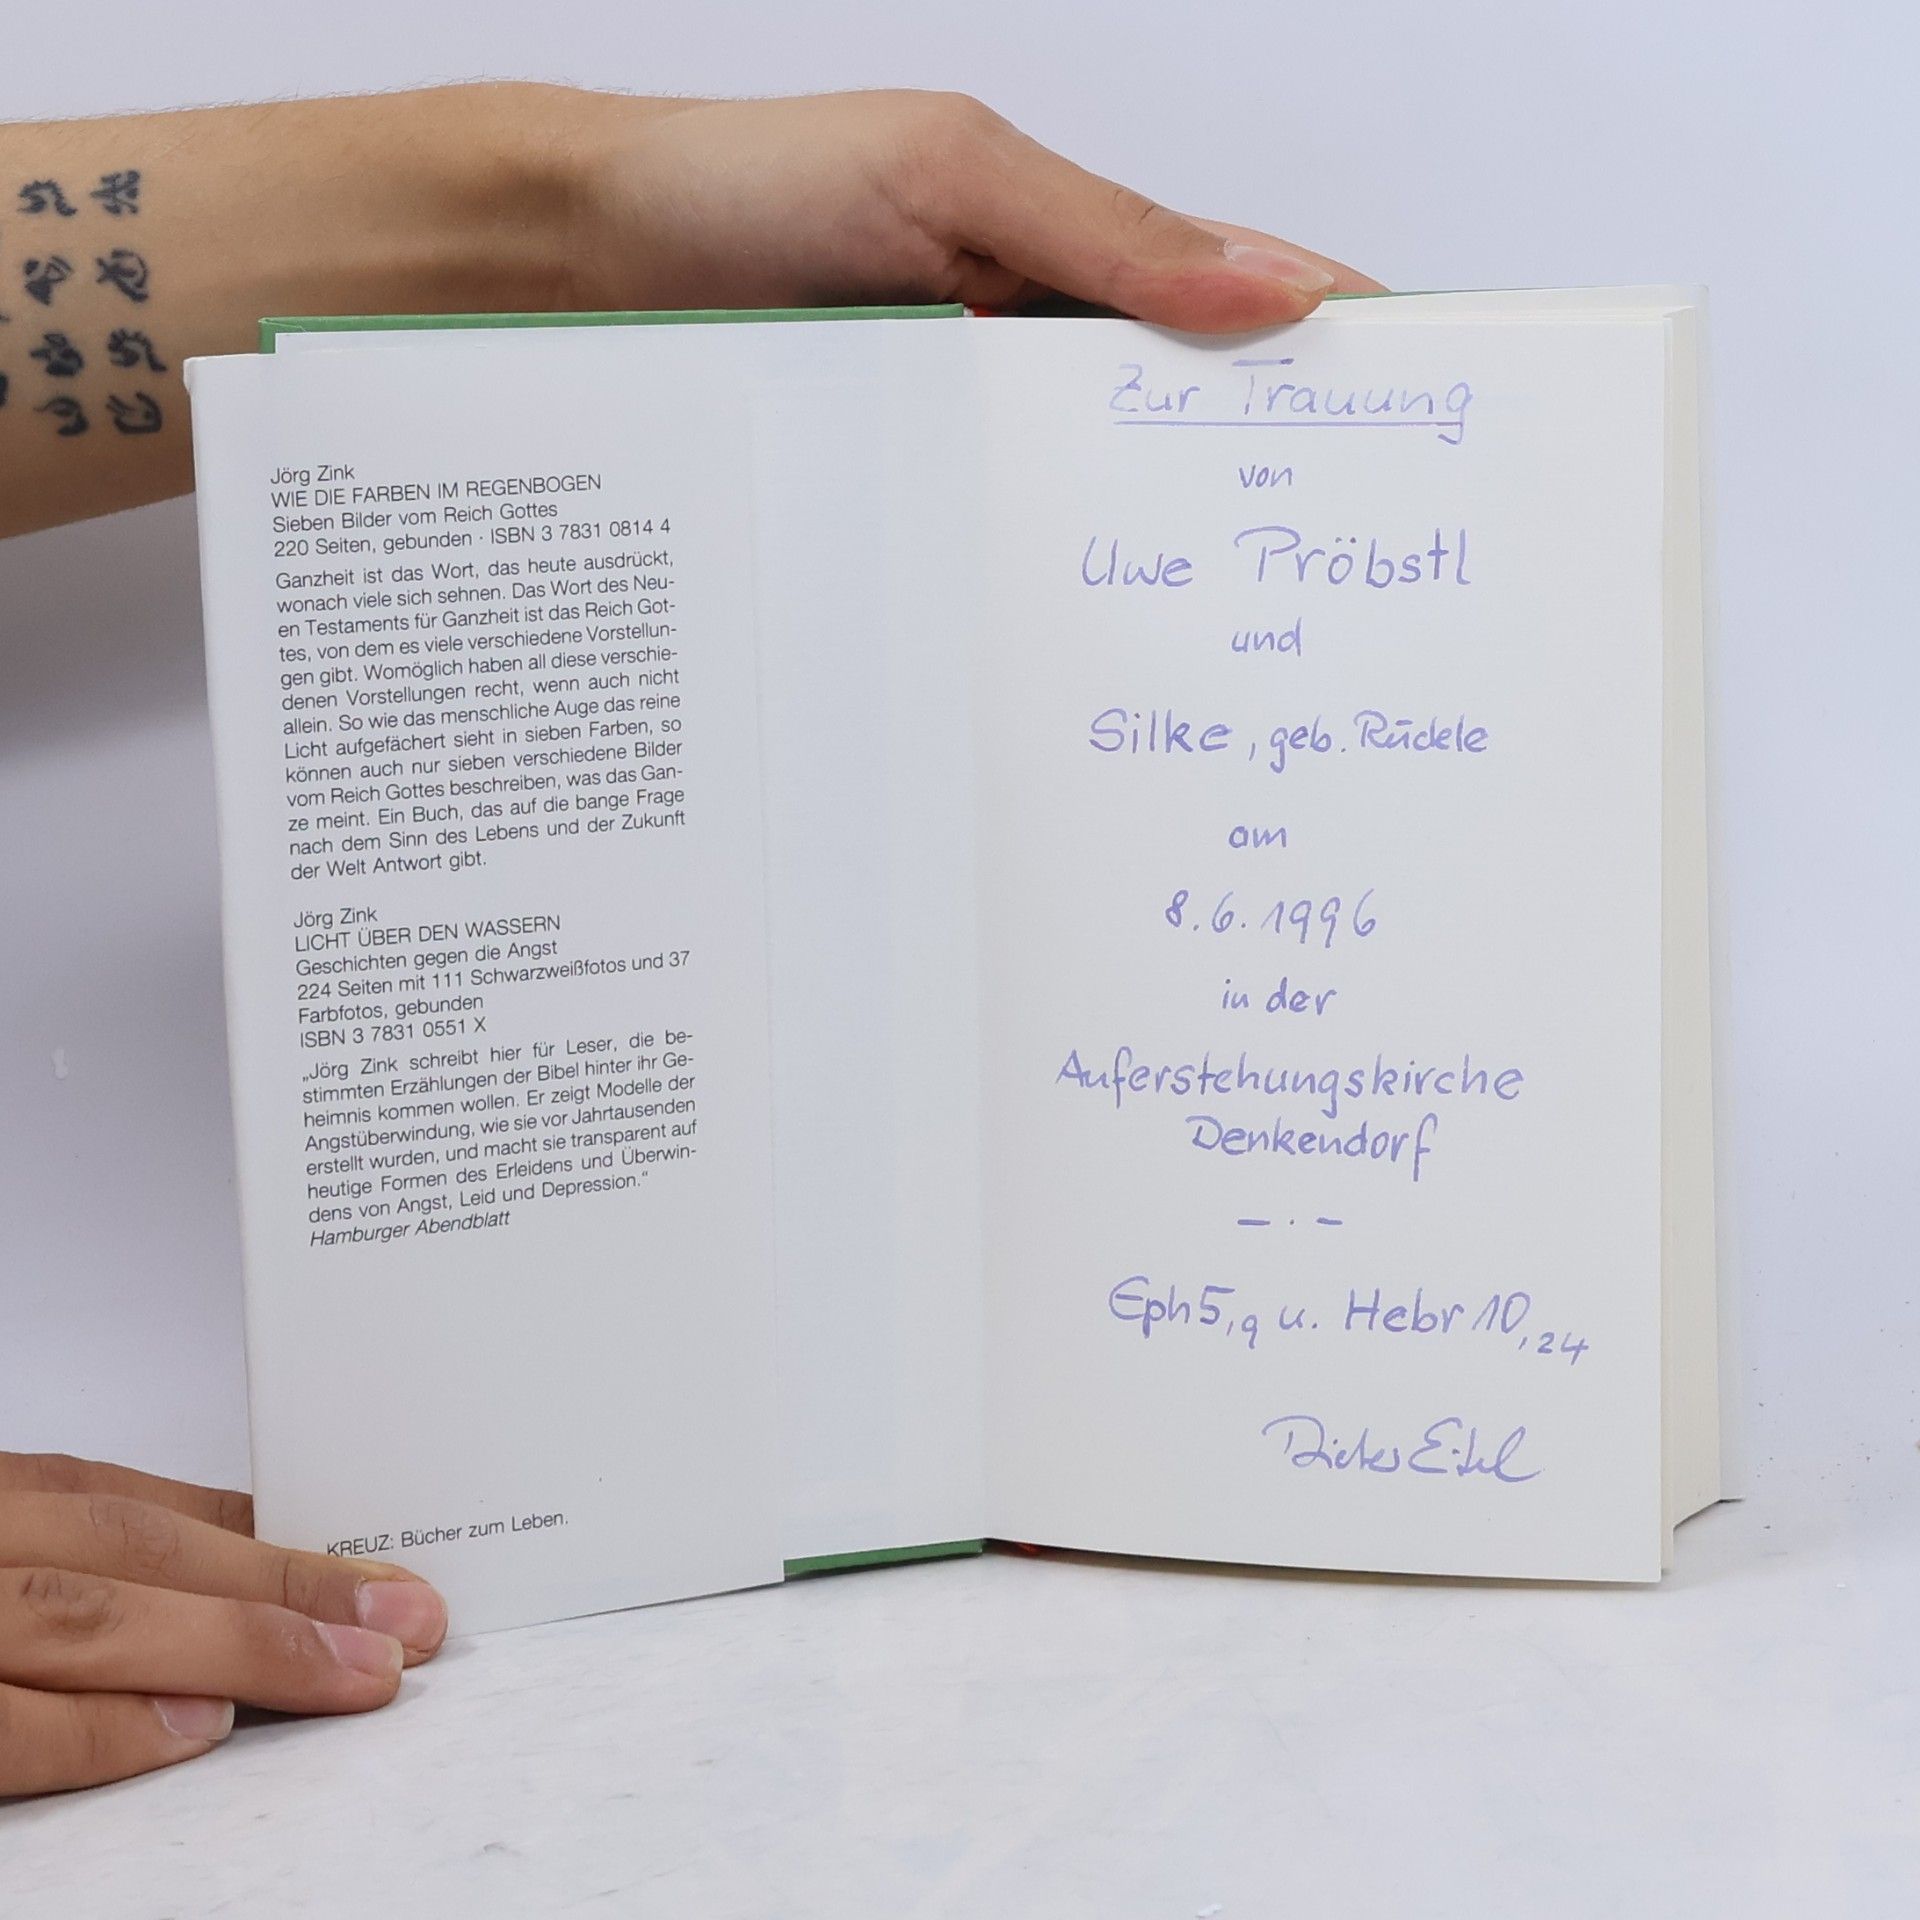 Jörg Zink
WIE DIE FARBEN IM REGENBOGEN
Sieben Bilder vom Reich Gottes
220 Seiten, gebunden · ISBN 3 7831 0814 4
Ganzheit ist das Wort, das heute ausdrückt,
wonach viele sich sehnen. Das Wort des Neu-
en Testaments für Ganzheit ist das Reich Got-
tes, von dem es viele verschiedene Vorstellun-
gen gibt. Womöglich haben all diese verschie-
denen Vorstellungen recht, wenn auch nicht
allein. So wie das menschliche Auge das reine
Licht aufgefächert sieht in sieben Farben, so
können auch nur sieben verschiedene Bilder
vom Reich Gottes beschreiben, was das Gan-
ze meint. Ein Buch, das auf die bange Frage
nach dem Sinn des Lebens und der Zukunft
der Welt Antwort gibt.
Jörg Zink
LICHT ÜBER DEN WASSERN
Geschichten gegen die Angst
224 Seiten mit 111 Schwarzweißfotos und 37
Farbfotos, gebunden
ISBN 3 7831 0551 X
„Jörg Zink schreibt hier für Leser, die be-
stimmten Erzählungen der Bibel hinter ihr Ge-
heimnis kommen wollen. Er zeigt Modelle der
Angstüberwindung, wie sie vor Jahrtausenden
erstellt wurden, und macht sie transparent auf
heutige Formen des Erleidens und Überwin-
dens von Angst, Leid und Depression.“
Hamburger Abendblatt
KREUZ: Bücher zum Leben.
Zur Trauung
von
Uwe Pröbstl
und
Silke, geb. Rückle
am
8.6.1996
in der
Auferstehungskirche
Denkendorf
– · –
Eph 5,9 u. Hebr 10,24
Dieter Eitel